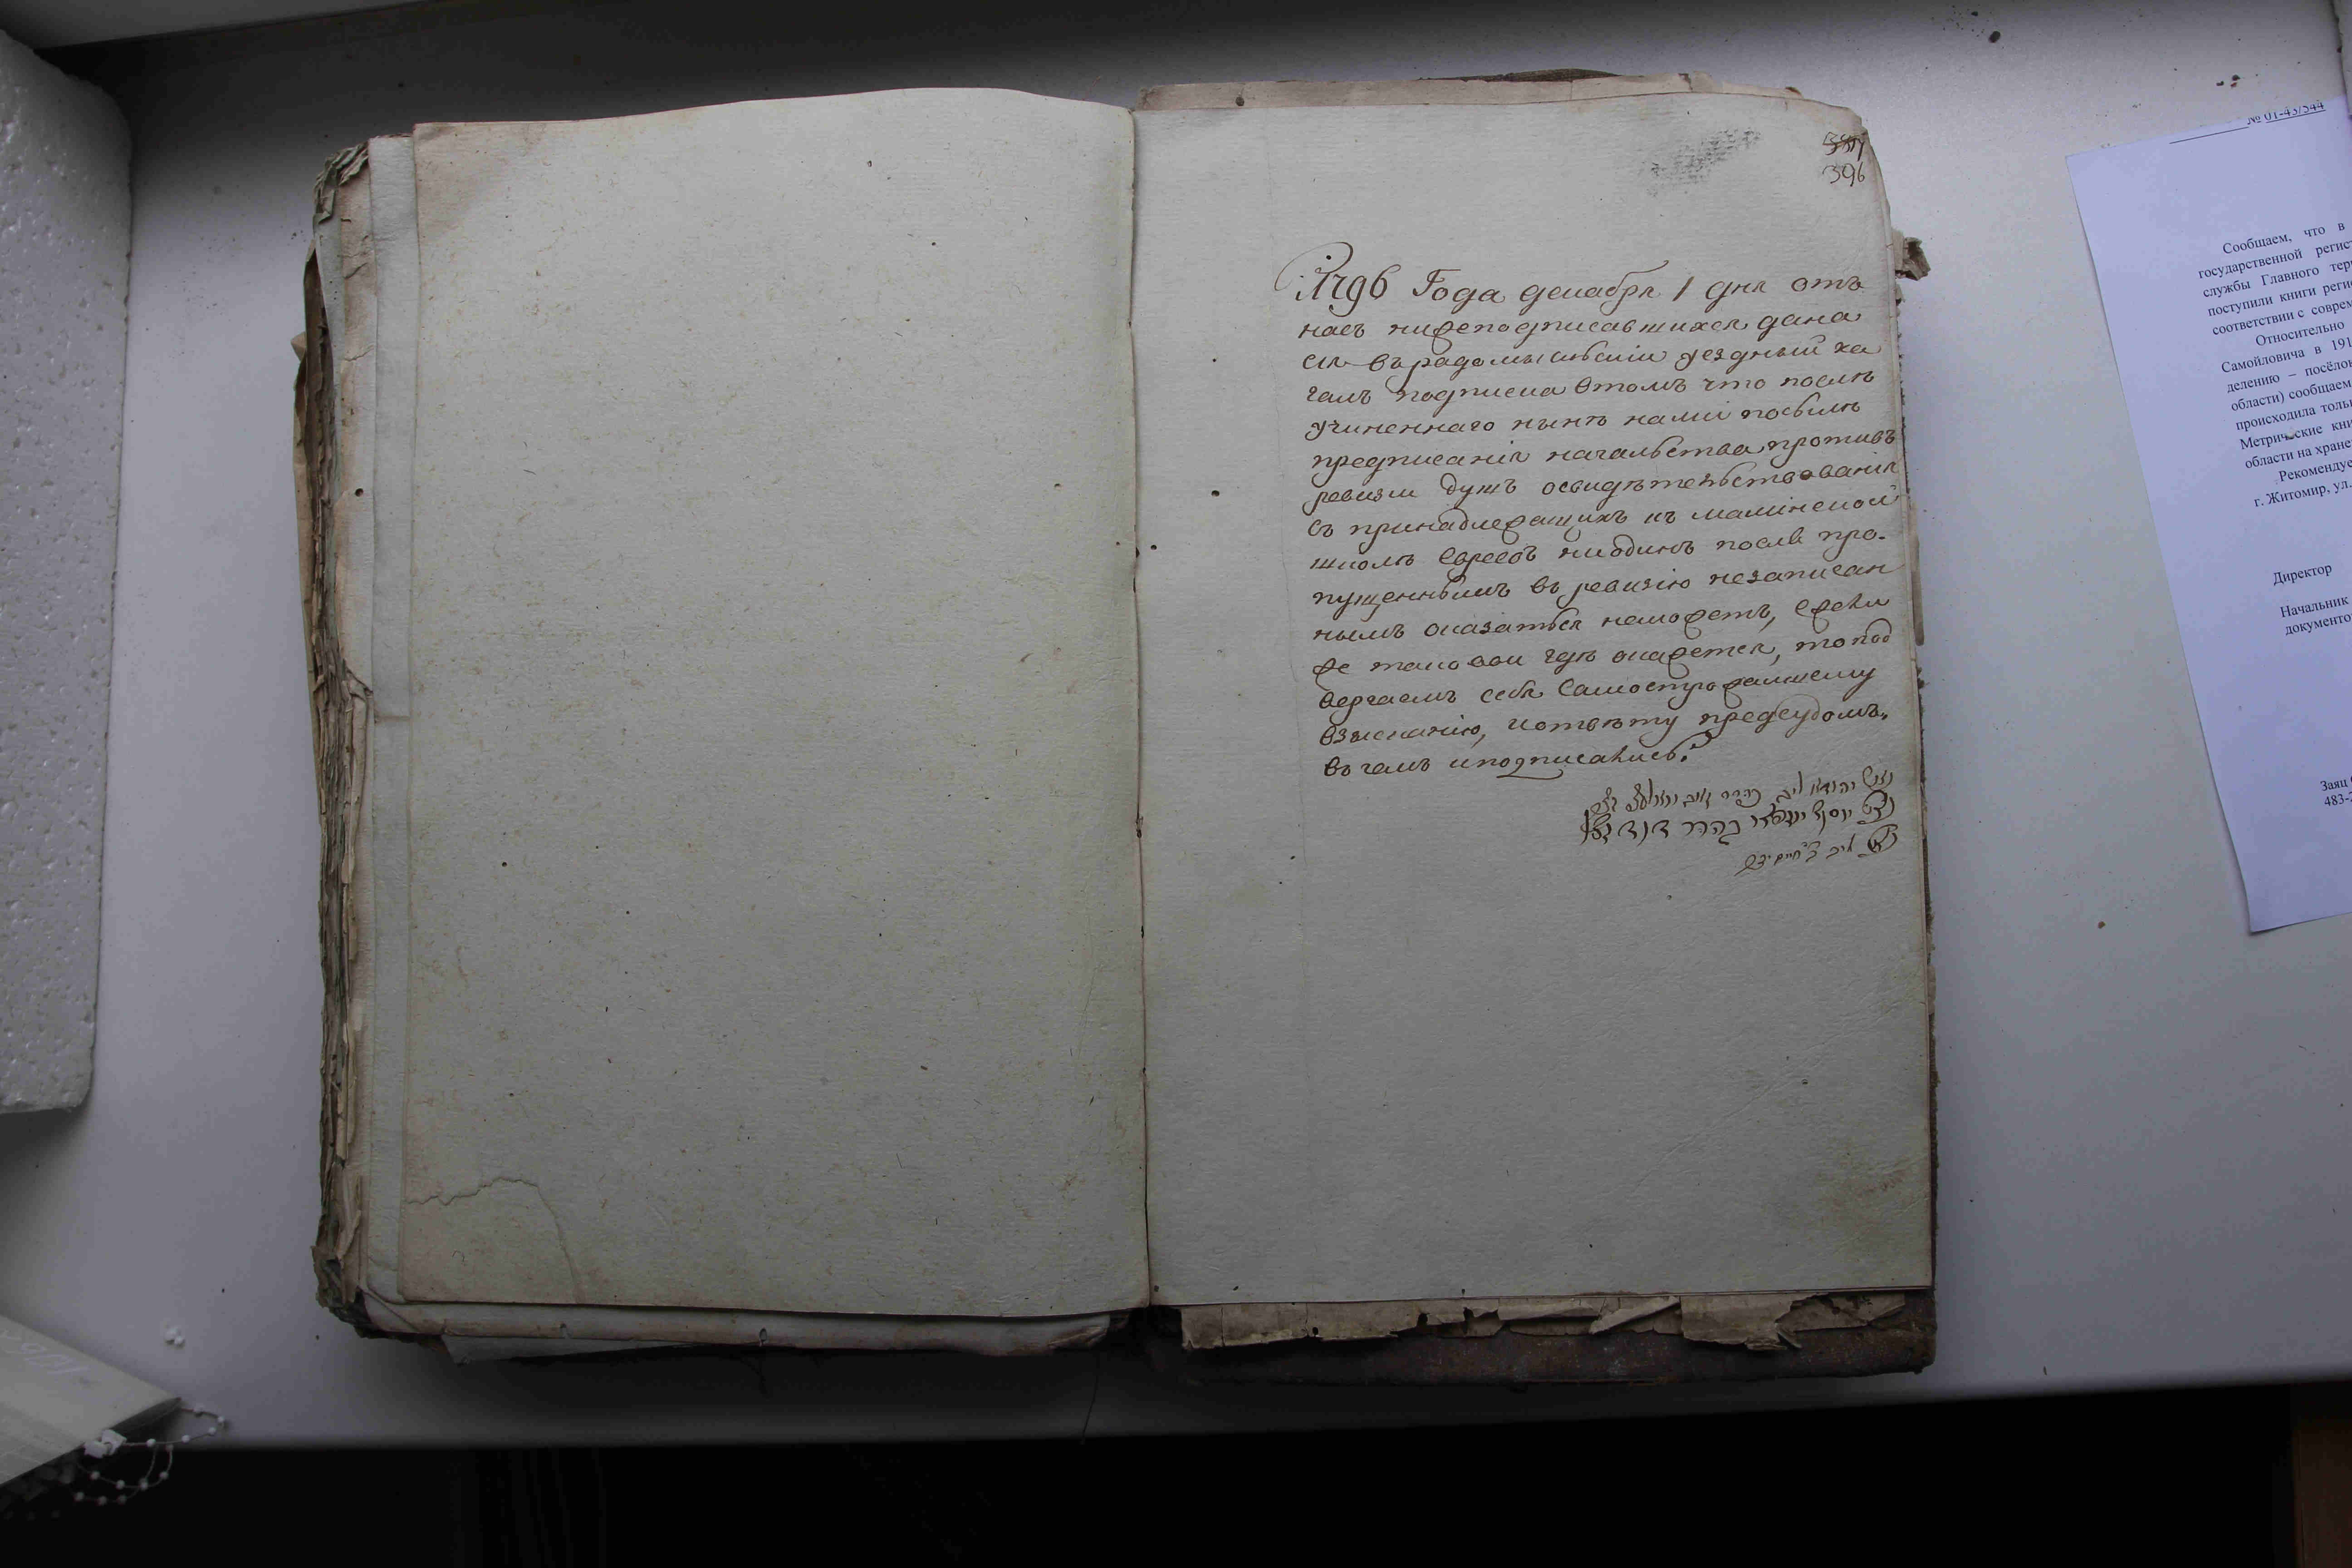 396
1796 Года декабря 1 дня отъ
насъ нижеподписавшихся дана
сия въ радомысльский уездный ка
галъ подписка втомъ что послѣ
учиненнаго нынѣ нами посылѣ
предписанія начальства противъ
ревизіи душъ освидѣтельствованія
съ принадлежащихъ къ малинской
школѣ Евреевъ ниодинъ послѣ про-
пущеннымъ въ ревизію незаписан
нымъ оказаться неможетъ, Ежели
же таковои гдѣ окажется, то под
вергаемъ себя Самостражаишему
взысканію, иответу предсудомъ.
въ чемъ иподписались:
нאום יהודא ליב
נאום יוסף
נאום ליב
№ 01-43/544
Сообщаем, что в
государственной регис
службы Главного тер
поступили книги реги
соответствии с соврем
Относительно
Самойловича в 191
делению – посёлок
области) сообщаем
происходила толь
Метрические кни
области на хране
Рекомендуе
г. Житомир, ул.
Директор
Начальник
документо
Заяц
483-2